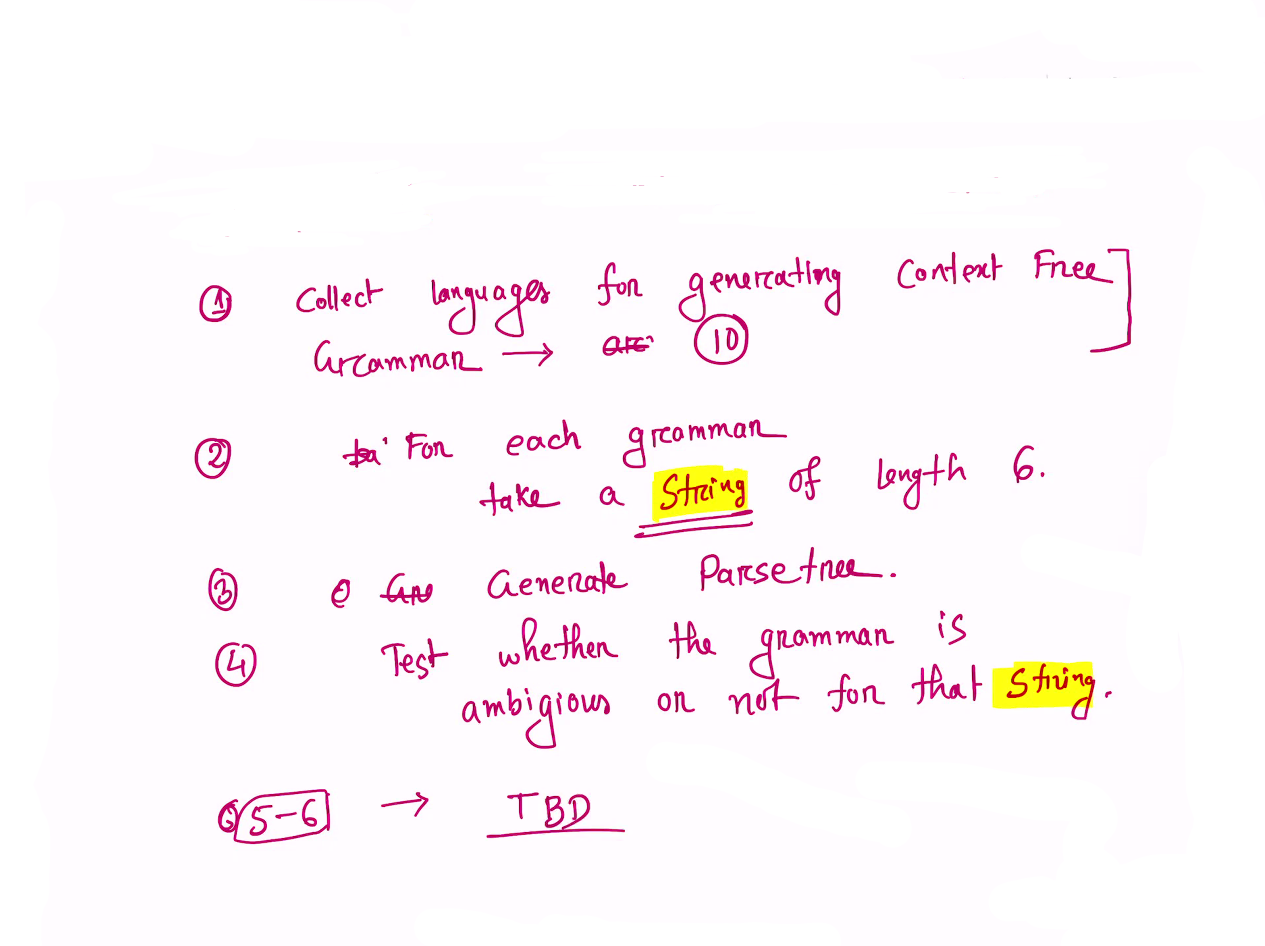 ① Collect languages for generating Context Free
Grammar → ⑩
② For each grammar
take a String of length 6.
③ Generate Parse tree.
④ Test whether the grammar is
ambigious or not for that String.
5-6 → TBD